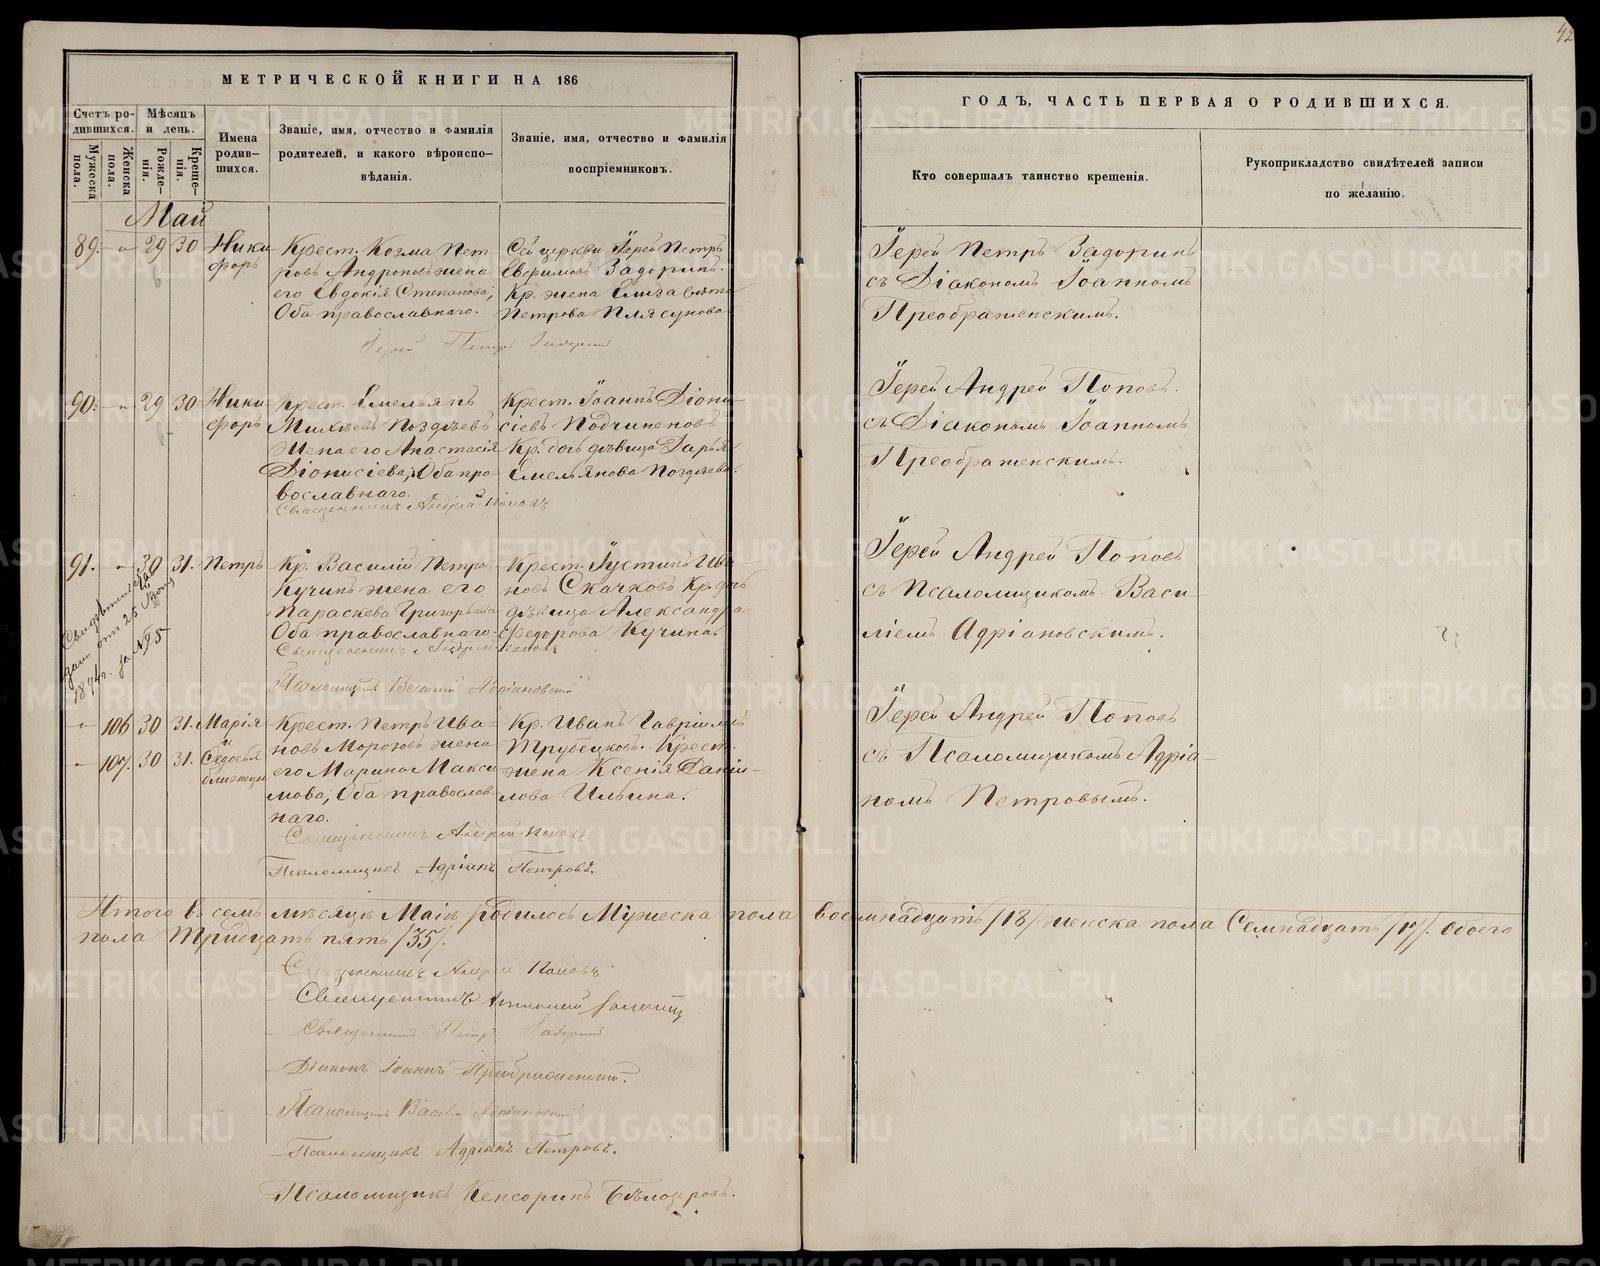 42
МЕТРИЧЕСКОЙ КНИГИ НА 186
Счетъ ро-
дившихся.
Мужеска
пола.
Женска
пола.
Мѣсяцъ
и день.
Рожде-
нія.
Креще-
нія.
Имена
родив-
шихся.
Званіе, имя, отчество и фамилія
родителей, и какого вѣроиспо-
вѣданія.
Званіе, имя, отчество и фамилія
воспріемниковъ.
Май
89. " 29 30 Ники-
форъ
Крест. Козма Пет
ровъ Андроновъ жена
его Евдокія Степанова;
Оба православнаго.
Сей церкви Іерей Петръ
Задоринъ.
Кр. жена Елизавета
Петрова Плясунова
Іерей Петръ Задоринъ
90. " 29 30 Ники-
форъ
Крест. Емельянъ
Михѣевъ Поздѣевъ
Жена его Анастасія
Діонисіева; Оба пра-
вославнаго.
Крест. Іоаннъ Діони-
сіевъ Подчиненовъ
Кр. дочь дѣвица Дарья
Емельянова Поздѣева.
Священникъ Андрей Поповъ
91. " 30 31. Петръ
Кр. Василій Петровъ
Кучинъ жена его
Параскева Григорьева
Оба православнаго.
Крест. Іустинъ Ива-
новъ Скачковъ Кр. дчь
дѣвица Александра
Федорова Кучина.
Священникъ Андрей Поповъ
Псаломщикъ Василій Адріановскій
дано отъ 25 
1894 г. за № 85
" 106 30 31. Марія
и
" 107. 30 31. Ѳедосья
близнецы
Крест. Петръ Ива-
новъ Морозовъ жена
его Марина Макси
мова; Оба православ-
наго.
Кр. Иванъ Гавріиловъ
Трубецковъ. Крест.
жена Ксенія Даніи-
лова Ильина.
Священникъ Андрей Поповъ
Псаломщикъ Адріанъ Петровъ.
Итого въ семъ мѣсяцѣ Маіѣ родилось Мужеска пола восмнадцать /18/ женска пола Семнадцать /17/. Обоего
пола Тридцать пять /35/.
Священникъ Андрей Поповъ
Священникъ
Священникъ Петръ Задоринъ
Діаконъ Іоаннъ Преображенскій.
Псаломщикъ Василій Адріановскій
Псаломщикъ Адріанъ Петровъ.
Псаломщикъ Кенсоринъ Бѣлозеровъ.
ГОДЪ, ЧАСТЬ ПЕРВАЯ О РОДИВШИХСЯ.
Кто совершалъ таинство крещенія.
Рукоприкладство свидѣтелей записи
по желанію.
Іерей Петръ Задоринъ
съ Діакономъ Іоанномъ
Преображенскимъ.
Іерей Андрей Поповъ.
съ Діакономъ Іоанномъ
Преображенскимъ.
Іерей Андрей Поповъ
съ Псаломщикомъ Васи
ліемъ Адріановскимъ.
Іерей Андрей Поповъ
съ Псаломщикомъ Адріа-
номъ Петровымъ.
METRIKI.GASO-URAL.RU